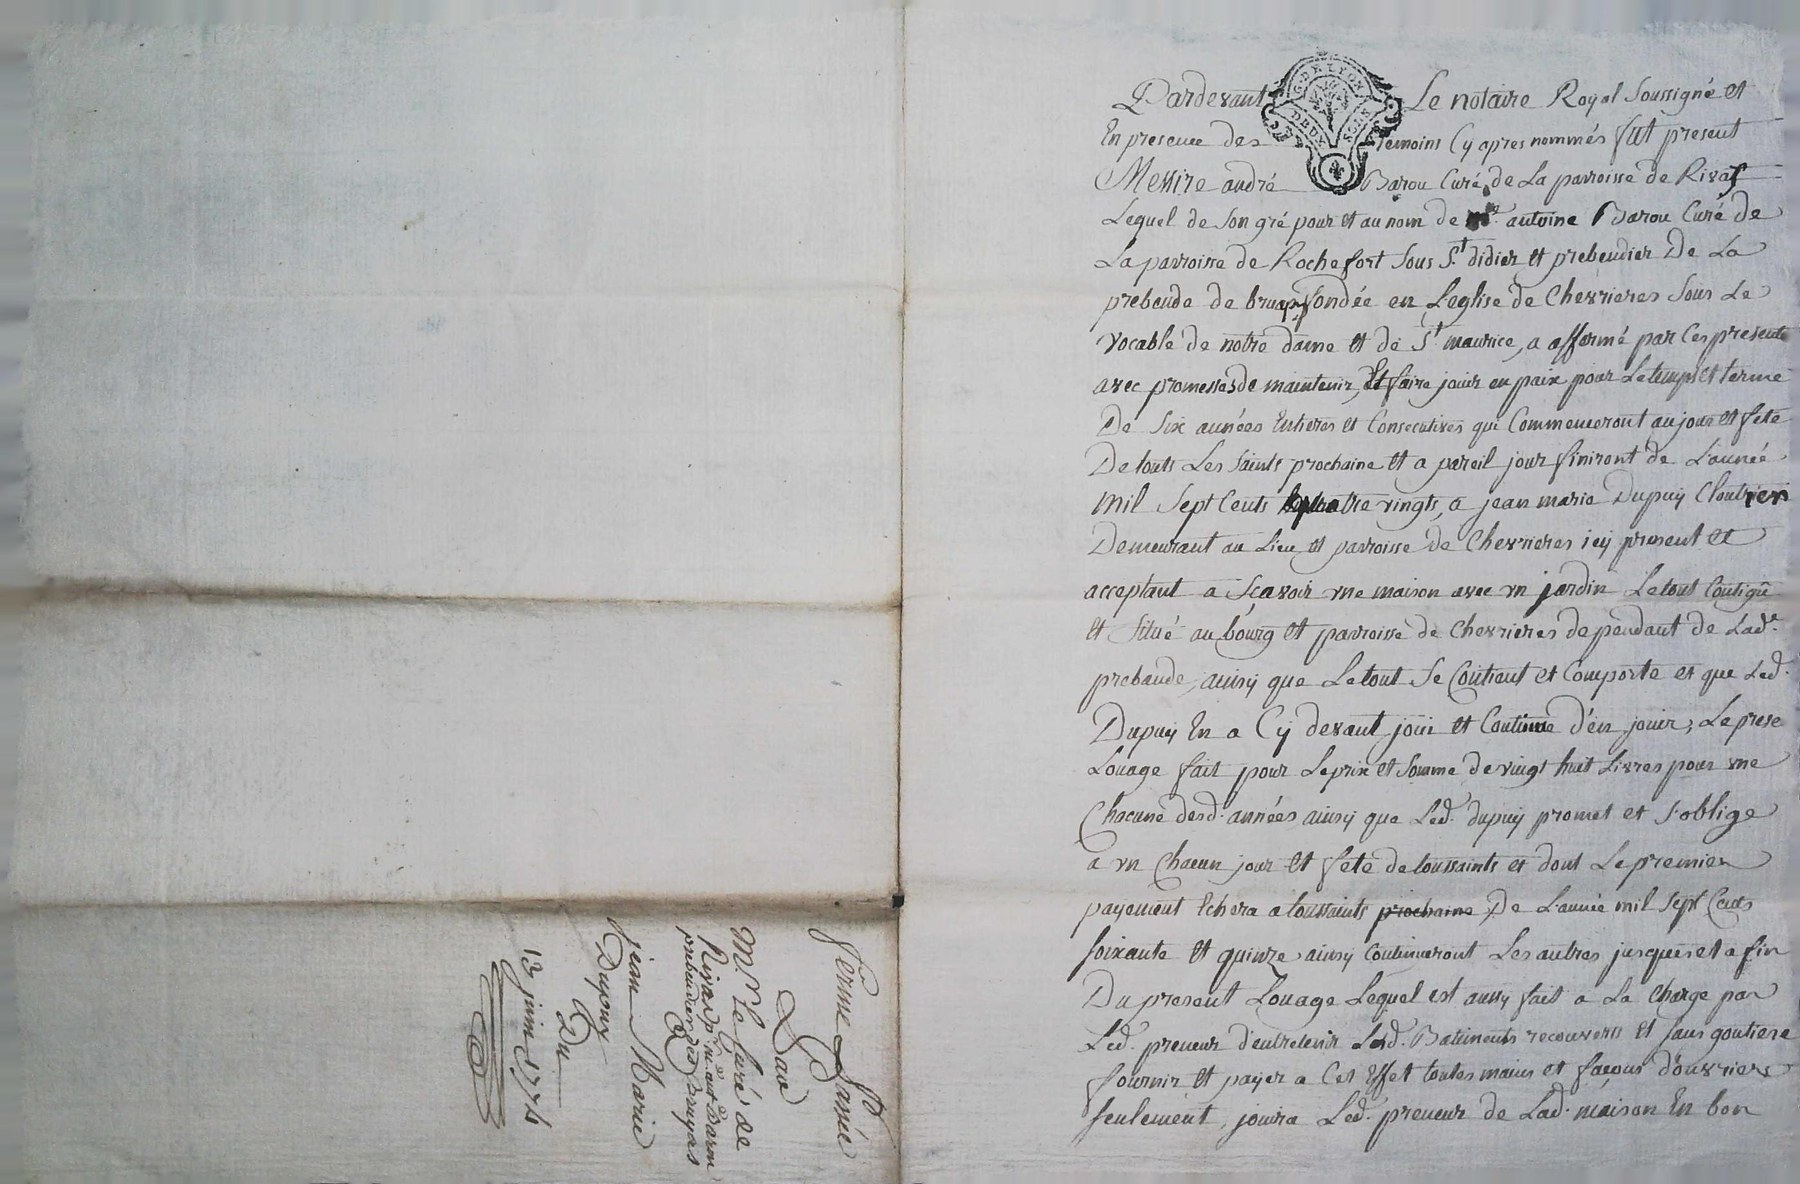 Pardevant Le notaire Royal Soussigné et
G. DE LYON
DEUX SOLS
En presence des temoins Cy apres nommés fut present
Messire andré Barou Curé de La parroisse de Rivas
Lequel de Son gré pour et au nom de mre. antoine Barou Curé de
La parroisse de Rochefort Sous St. didier et prebendier De La
prebende de bruyas fondée en L'eglise de Chevrieres Sous Le
vocable de notre dame et de St maurice, a affermé par Ces presente
avec promesses de maintenir, Et faire jouir en paix pour Le temps et terme
De Six années Entieres et Consecutives qui Commenceront au jour et fete
De touts Les Saints prochaine et a pareil jour finiront de L'année
Mil Sept Cents quatre vingts, a jean marie Dupuy Cloutrier
Demeurant au Lieu et parroisse de Chevrieres icy present et
acceptant a Scavoir vne maison avec vn jardin Le tout Contigu
et Situé au bourg et parroisse de Chevrieres dependant de Lade.
prebande, ainsy que Le tout Se Contient et Comporte et que Led.
Dupuy En a Cy devant joüi et Continue d'en jouir, Le prese
Louage fait pour Le prix et Somme de vingt huit Livres pour vne
Chacune desd. années ainsy que Led. dupuy promet et S'oblige
a vn Chacun jour et fete de toussaints et dont Le premier
payement Echera a toussaints prochaine De L'année mil Sept Cents
Soixante et quinze ainsy Continueront Les autres jusques et a fin
Du present Louage Lequel est aussy fait a La Charge par
Led. preneur d'entretenir Lesd. Batiments recouverts et Sans goutiere
fournir et payer a Cet Effet toutes mains et façons d'ouvriers
Seulement, jouira Led. preneur de Lad. maison En bon
ferme Passée
Par
Mr. le Curé de
Rivas pr. mre. ant Barou
prebendier de Bruyas
A
jean Marie
Dupuy
Du
13 juin 1774